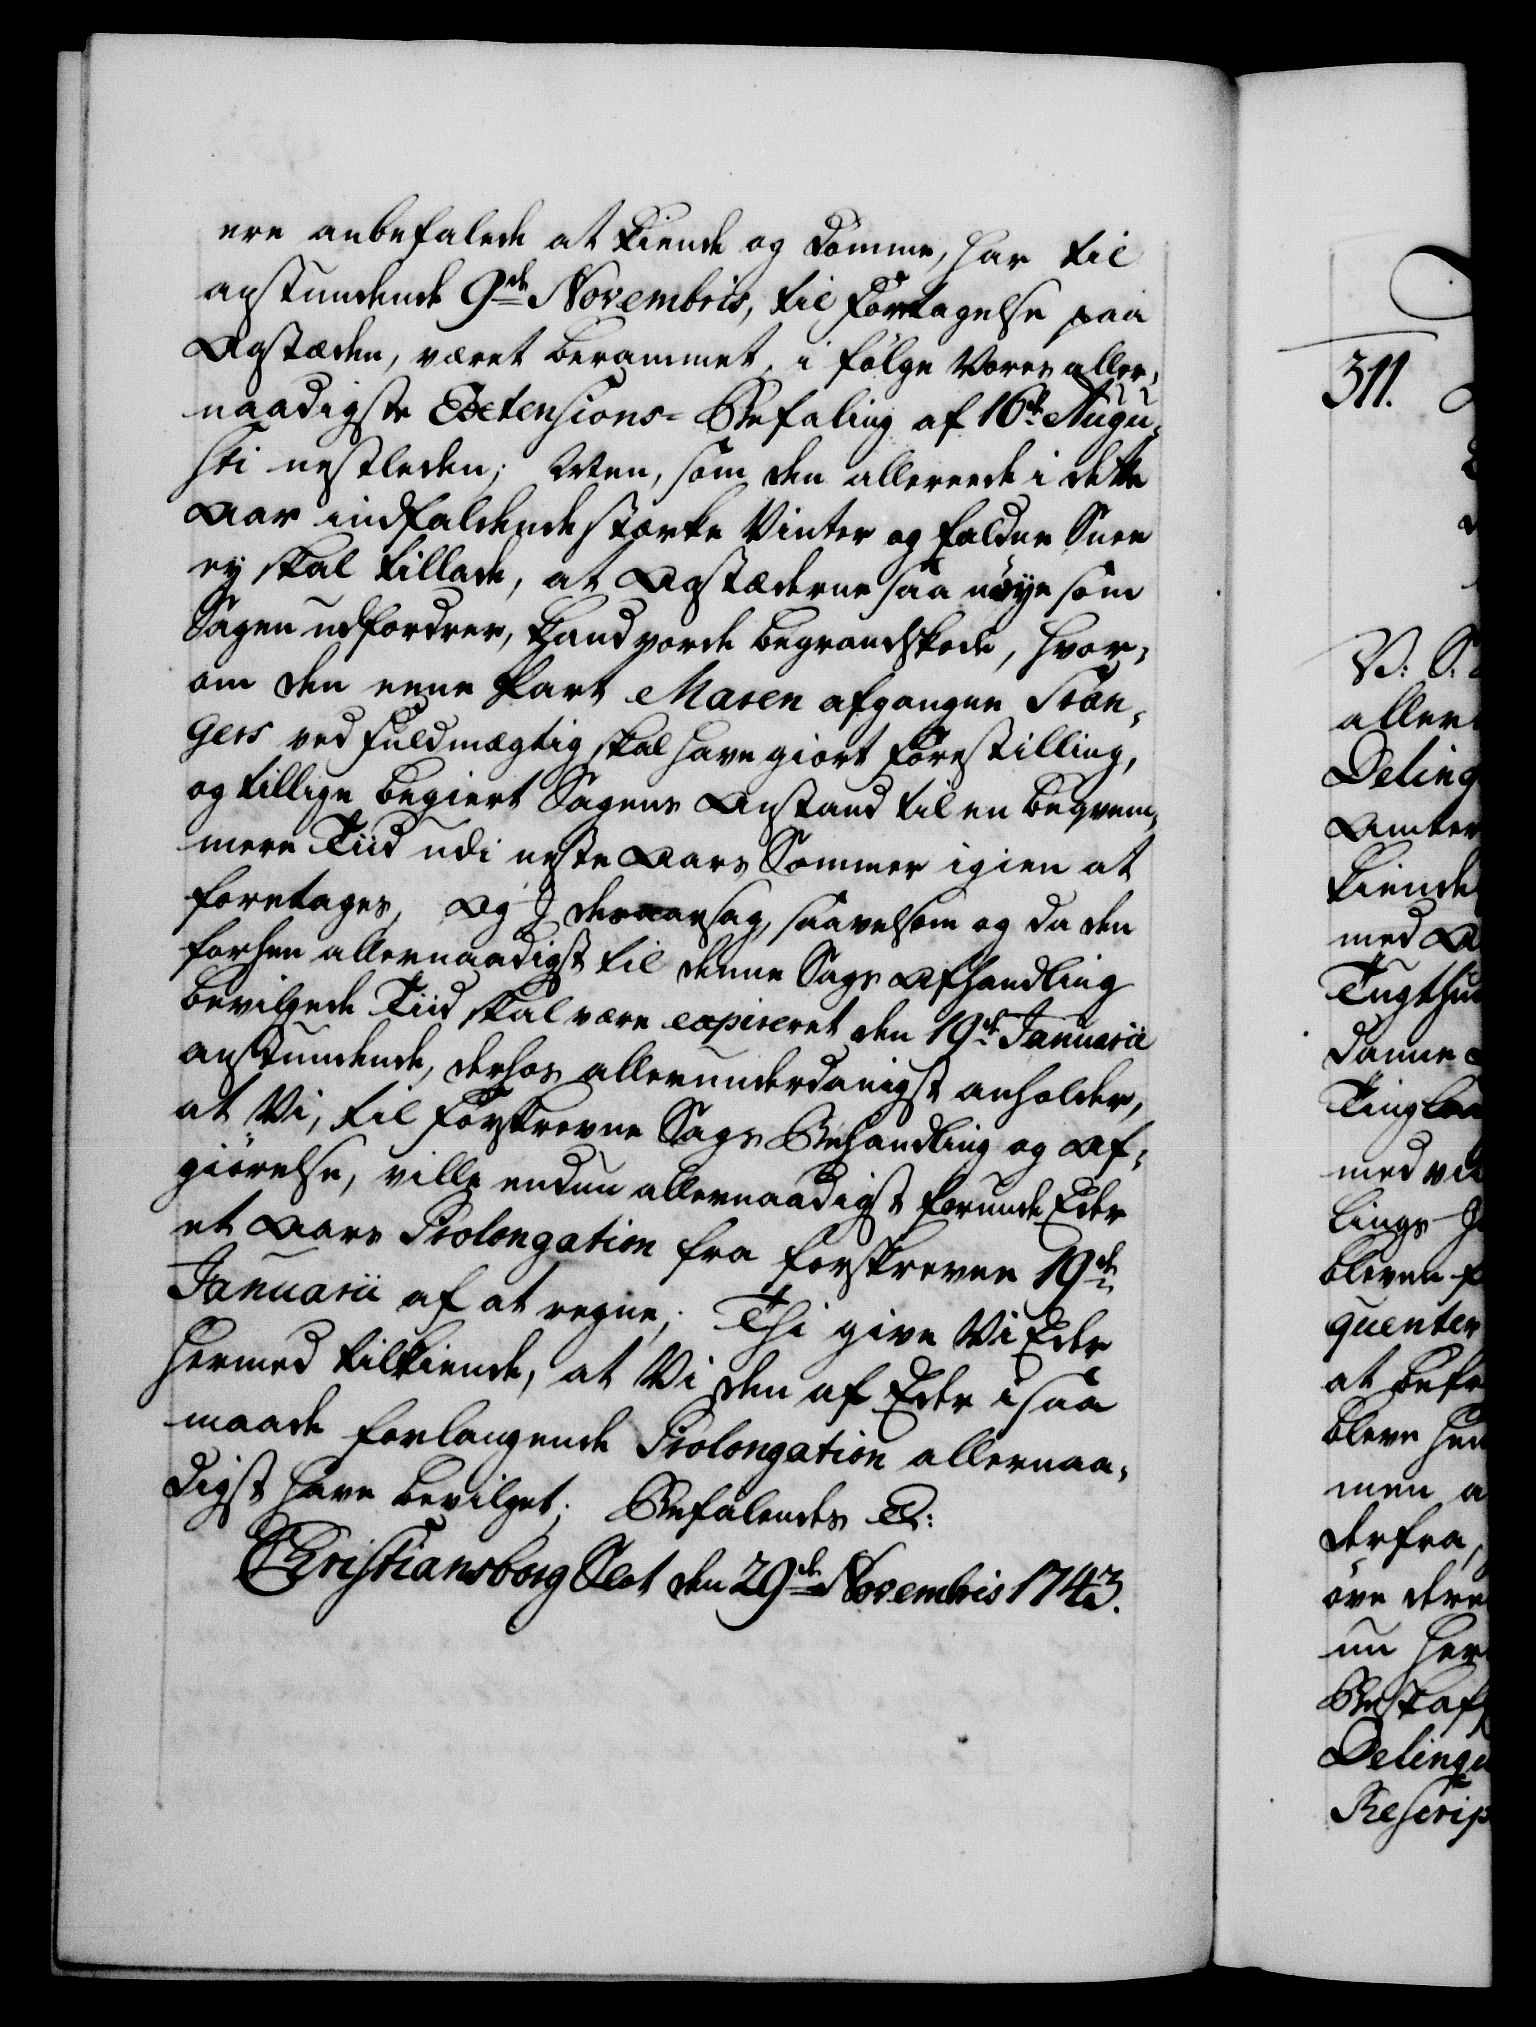 ere anbefalede at kiende og dømme, har til
anstundende 9de Novembris, til Foretagelse paa
Aastæden, været berammet, i følge Vores aller-
naadigste Extensions-Befaling af 16de Augu-
sti nestleden; Men, som den allereede i dette
Aar indfaldende stærke Vinter og faldne Snee
ey skal tillade, at Aastæderne saa nöye som
Sagen udfordrer, kand vorde begrandskede, hvor-
om den eene Part Maren afgangne
ved Fuldmægtig skal have giort Forestilling,
og tillige begiert Sagens Anstand til en beqvem-
mere Tiid udi neste Aars Sommer igien at
foretages, Og I deraarsag, saavelsom og da den
forhen allernaadigst til denne Sags Afhandling
bevilgede Tiid skal være expireret den 19de Januarii
anstundende, derhos allerunderdanigst anholder,
at Vi, til forskrevne Sags Behandling og Af-
giörelse, ville endnu allernaadigst forunde Eder
et Aars Prolongation fra forskrevne 19de
Januarii af at regne; Thi give Vi Eder
hermed tilkiende, at Vi den af Eder i saa
maade forlangende Prolongation allernaa-
digst have bevilget; Befalendes &:
Christiansborg Slot den 29de Novembris 1743.
311.
V: S:
aller
Deling
Amter
kiende
med
Tugthu
danne
Ting
med
lings
bleven
quenter
at
bleve
men a
derfra,
öve dere
nu her
Delinqu
Rescrip